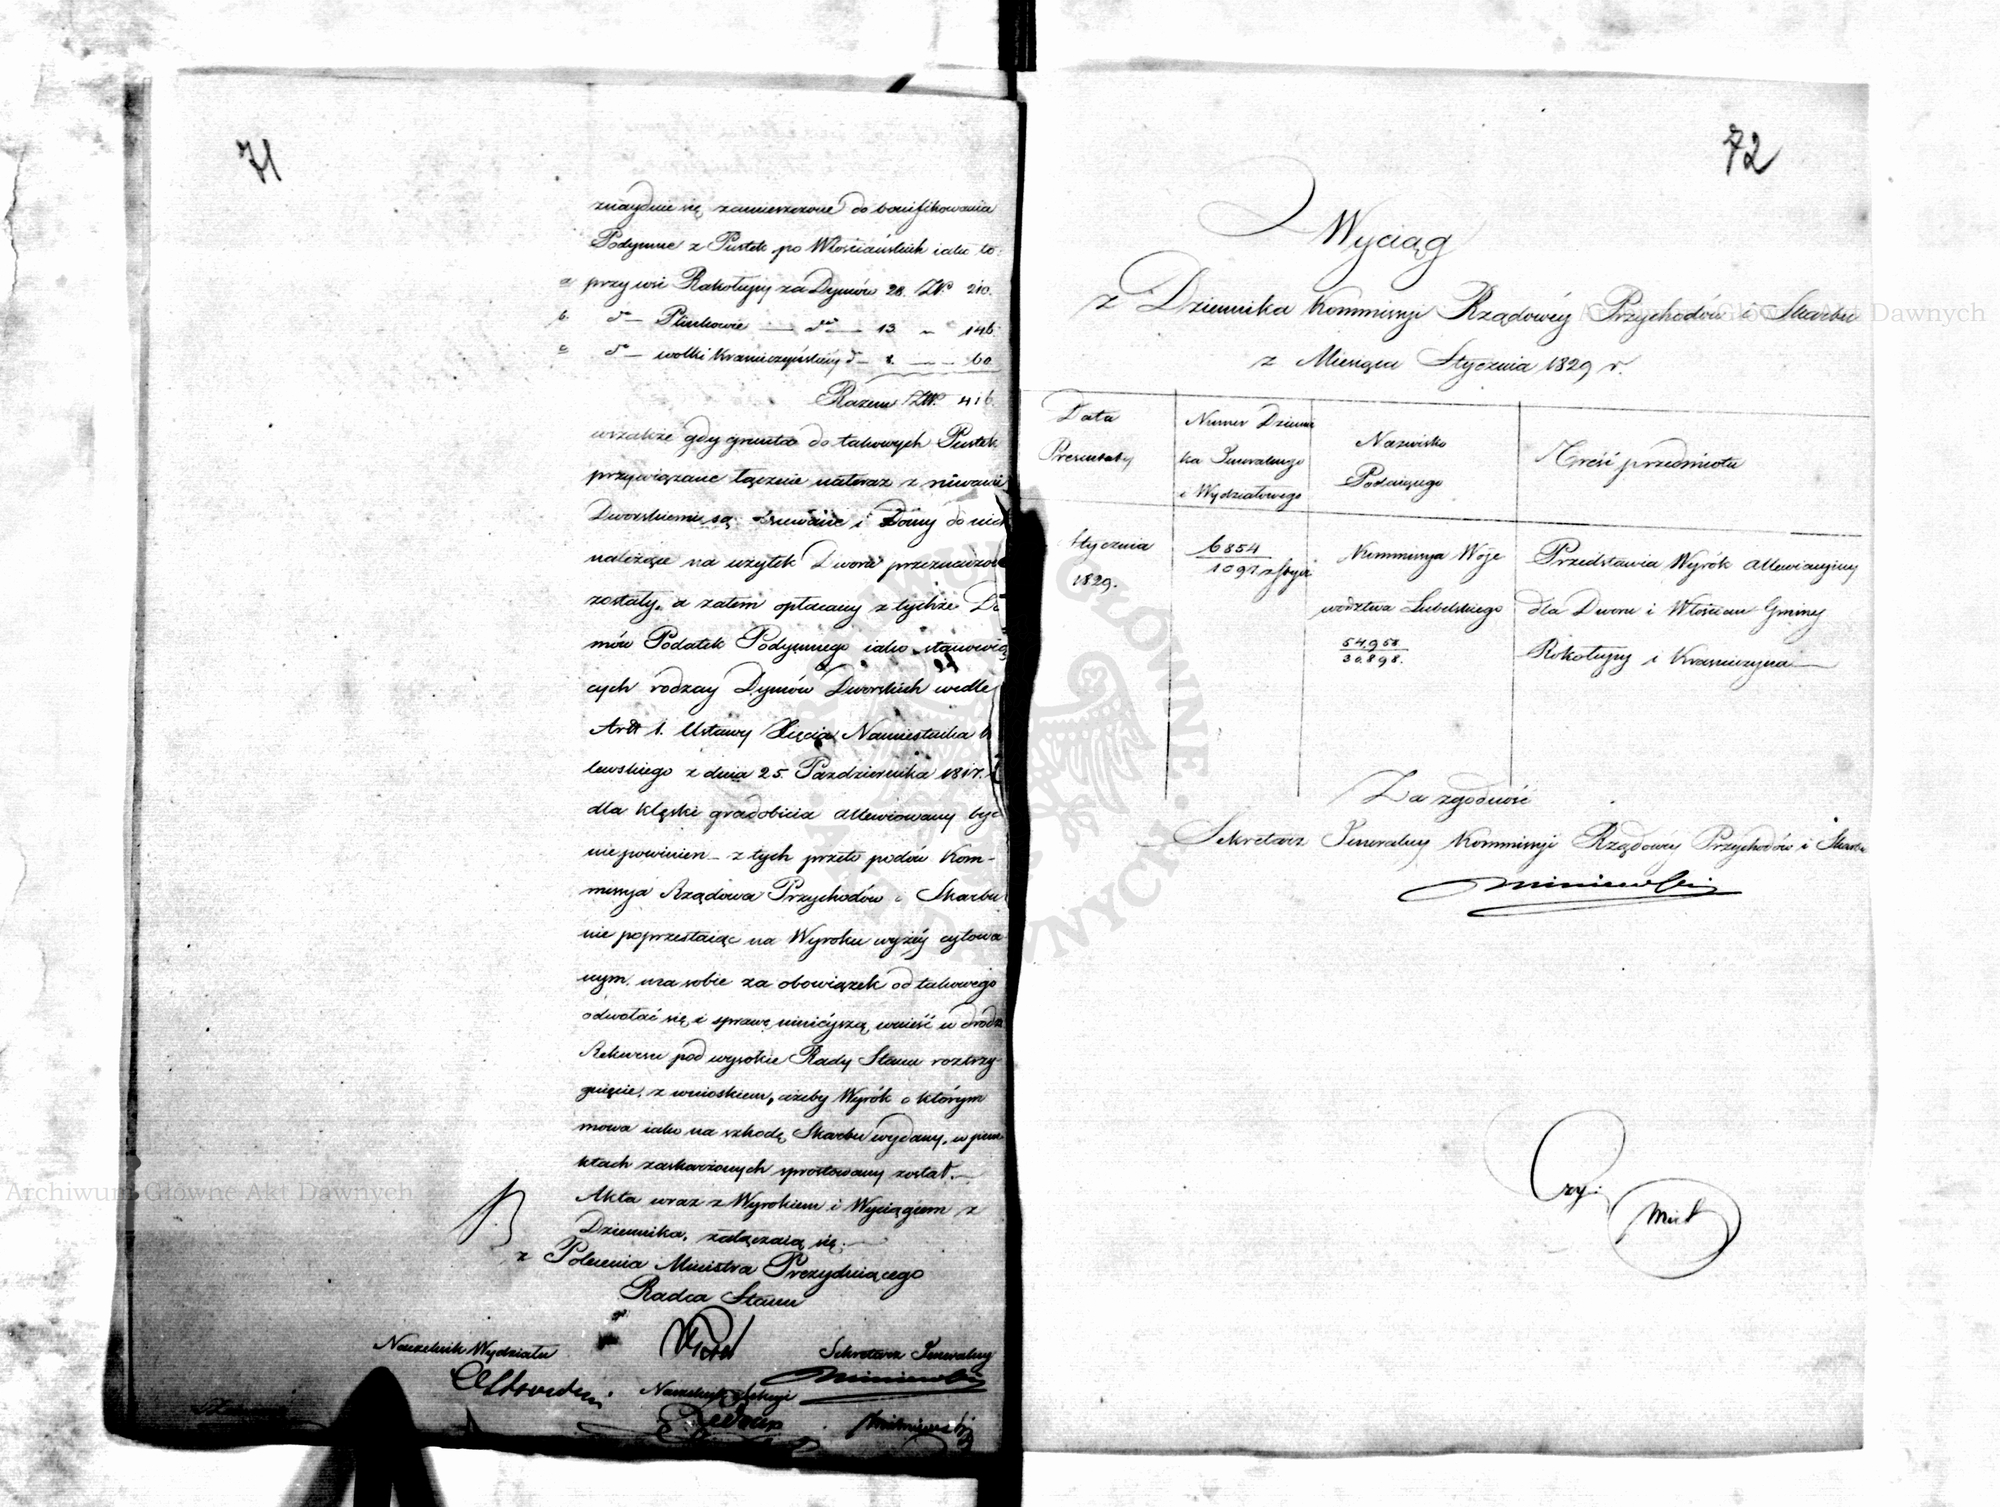 71
znayduie się zamieszczone do bonifikowania
Podymne z Pustek po Włościańskich iako to:
a przy wsi Rakołupy za Dymów 28. ZłP. 210.
b. do — Pliskowie — do — 13 — 146
c do — wolki Kraśniczyńskiey d — 8 — 60
Razem ZłP. 416.
wszakże gdy grunta do takowych Pustek
przywiązane łącznie nateraz z niwami
Dworskiemi są obsiewane i Domy do nich
należące na użytek Dworu przeznaczone
zostały, a zatem opłacany z tychże Do
mów Podatek Podymnego iako stanowią
cych rodzay Dymów Dworskich wedle
Artt 1. Ustawy Xięcia Namiestnika
lewskiego z dnia 25. Pazdziernika 1817.
dla klęski gradobicia allewiowany być
nie powinien — z tych przeto podów Kom-
missya Rządowa Przychodów i Skarbu
nie poprzestaiąc na Wyroku wyżéy cytowa
nym, ma sobie za obowiązek od takowego
odwołać się i sprawę ninieyszą wnieść w drodze
Rekursu pod wysokie Rady Stanu roztrzy
gnięcie, z wnioskiem, ażeby Wyrók o którym
mowa iako na szkodę Skarbu wydany, w pun
ktach zaskarżonych sprostowany został.—
Akta wraz z Wyrokiem i Wyciągiem z
Dziennika, załączaią się.—
z Polecenia Ministra Prezyduiącego
Radca Stanu
Naczelnik Wydziału
Sekretarz Jeneralny
Naczelnik Sekcyi
72
Wyciąg
z Dziennika Kommissyi Rządowéy Przychodów i Skarbu
z Miesiąca Stycznia 1829 r.
Data
Presentaty
Numer Dzienni
ka Jeneralnego
i Wydziałowego
Nazwisko
Podaiącego
Treść przedmiotu
Stycznia
1829.
6854
1091
Kommissya Woje
wództwa Lubelskiego
54,958
30,898.
Przedstawia Wyrók allewiacyiny
dla Dworu i Włościan Gminy
Rokołupy i Kraśniczyna —
Za zgodność
Sekretarz Jeneralny Kommissyi Rządowey Przychodów i Skarbu
Archiwum Główne Akt Dawnych
Archiwum Główne Akt Dawnych